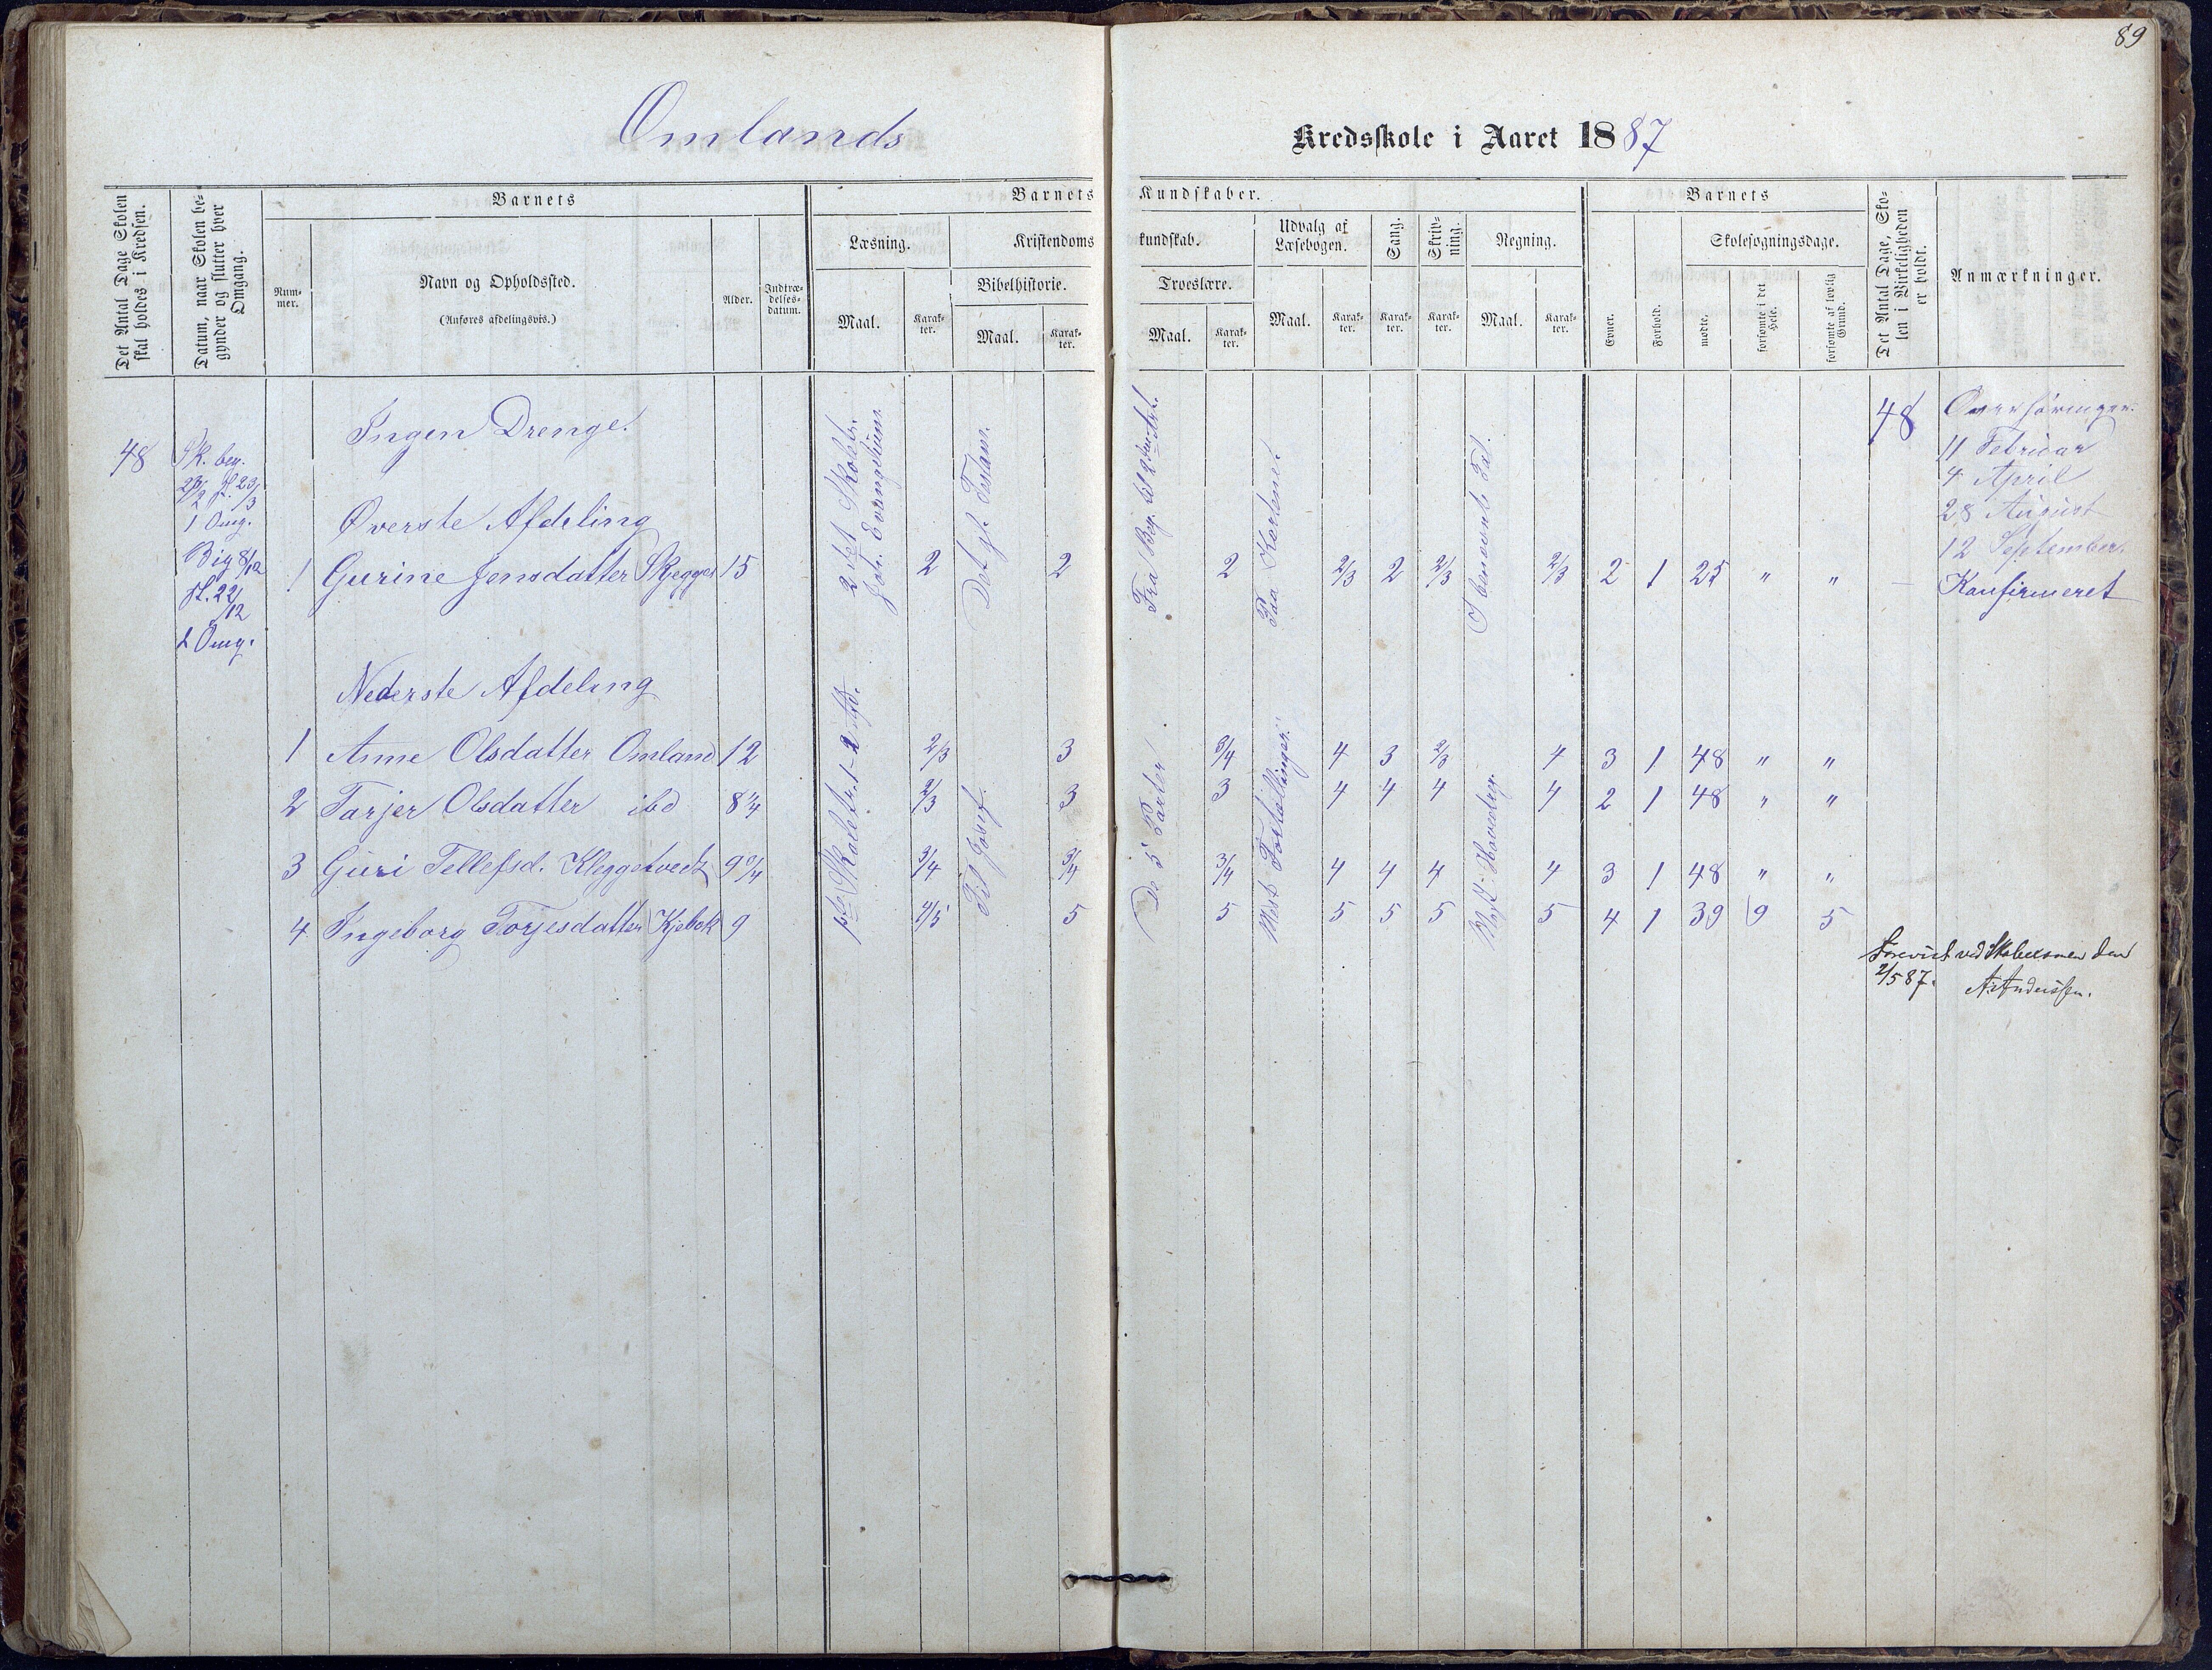 89
Omlands Kredsskole i Aaret 1887
Det Antal Dage Skolen skal holdes i Kredsen.
Datum, naar Skolen begynder og slutter hver Omgang.
Barnets
Nummer.
Navn og Opholdssted.
(Anføres afdelingsvis.)
Alder.
Indtrædelsesdatum.
Barnets Kundskaber.
Læsning.
Maal.
Karakter.
Kristendomskundskab.
Bibelhistorie.
Maal.
Karakter.
Troeslære.
Maal.
Karakter.
Udvalg af Læsebogen.
Maal.
Karakter.
Sang.
Karakter.
Skrivning.
Karakter.
Regning.
Maal.
Karakter.
Barnets
Evner.
Forhold.
Skolesøgningsdage.
mødte.
forsømte i det Hele.
forsømte af lovlig Grund.
Det Antal Dage, Skolen i Virkeligheden er holdt.
Anmærkninger.
48
Sk. beg.
1 Omg.
Big 8/12
sl. 22/12
2 Omg.
Ingen Drenge.
Øverste Afdeling
1 Gurine Jensdatter 15 2 2 2 2/3 2 2/3 2/3 2 1 25 " "
Nederste Afdeling
1 Anne Olsdatter Omland 12 2/3 3 3/4 4 3 2/3 4 3 1 48 " "
2 Tarjer Olsdatter ibd 8 1/4 2/3 3 3 4 4 4 4 2 1 48 " "
3 Guri Tellefsd. 3/4 3/4 3/4 4 4 4 4 3 1 48 " "
4 Ingeborg Torjesdatter 9 4/5 5 5 5 5 5 5 4 1 39 9 5
Joh. Evangelium.
Det gl. Testam.
Paa Kortene
I benævnte Tal.
Til Josef.
De 5 Parter
Mest Fortællinger.
48
Overhøringer.
11 Februar
4 April
28 August
12 September
Konfirmeret
Forevist ved den
2/5 87.